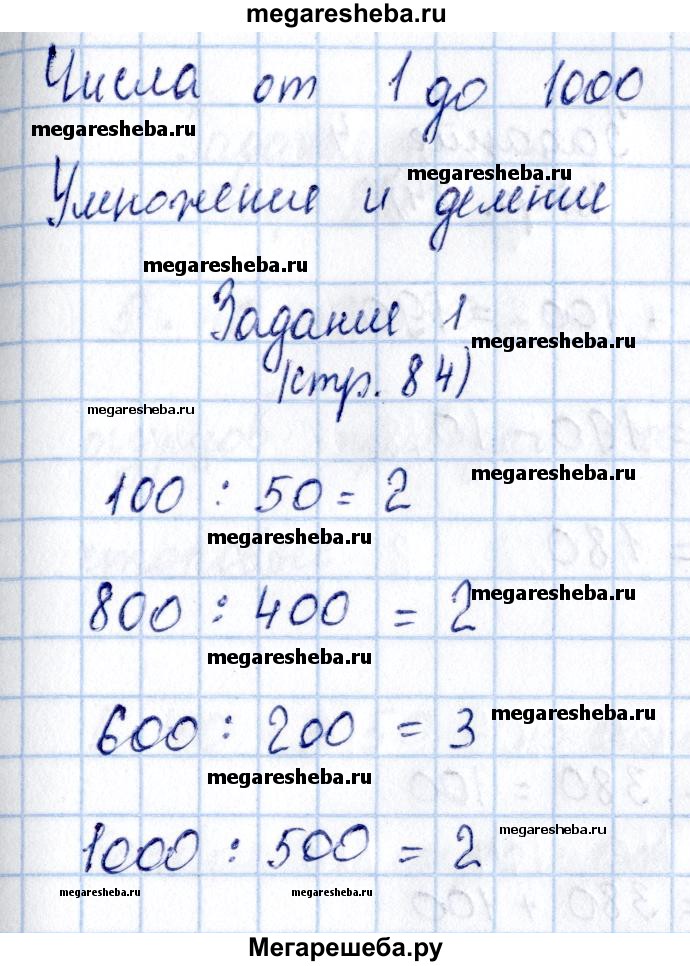 megaresheba.ru
Числа от 1 до 1000
megaresheba.ru
Умножение и деление
megaresheba.ru
megaresheba.ru
Задание 1
megaresheba.ru
(стр. 84)
megaresheba.ru
100 : 50 = 2
megaresheba.ru
megaresheba.ru
800 : 400 = 2
megaresheba.ru
megaresheba.ru
600 : 200 = 3
megaresheba.ru
megaresheba.ru
1000 : 500 = 2
megaresheba.ru
megaresheba.ru megaresheba.ru
Мегарешеба.ру